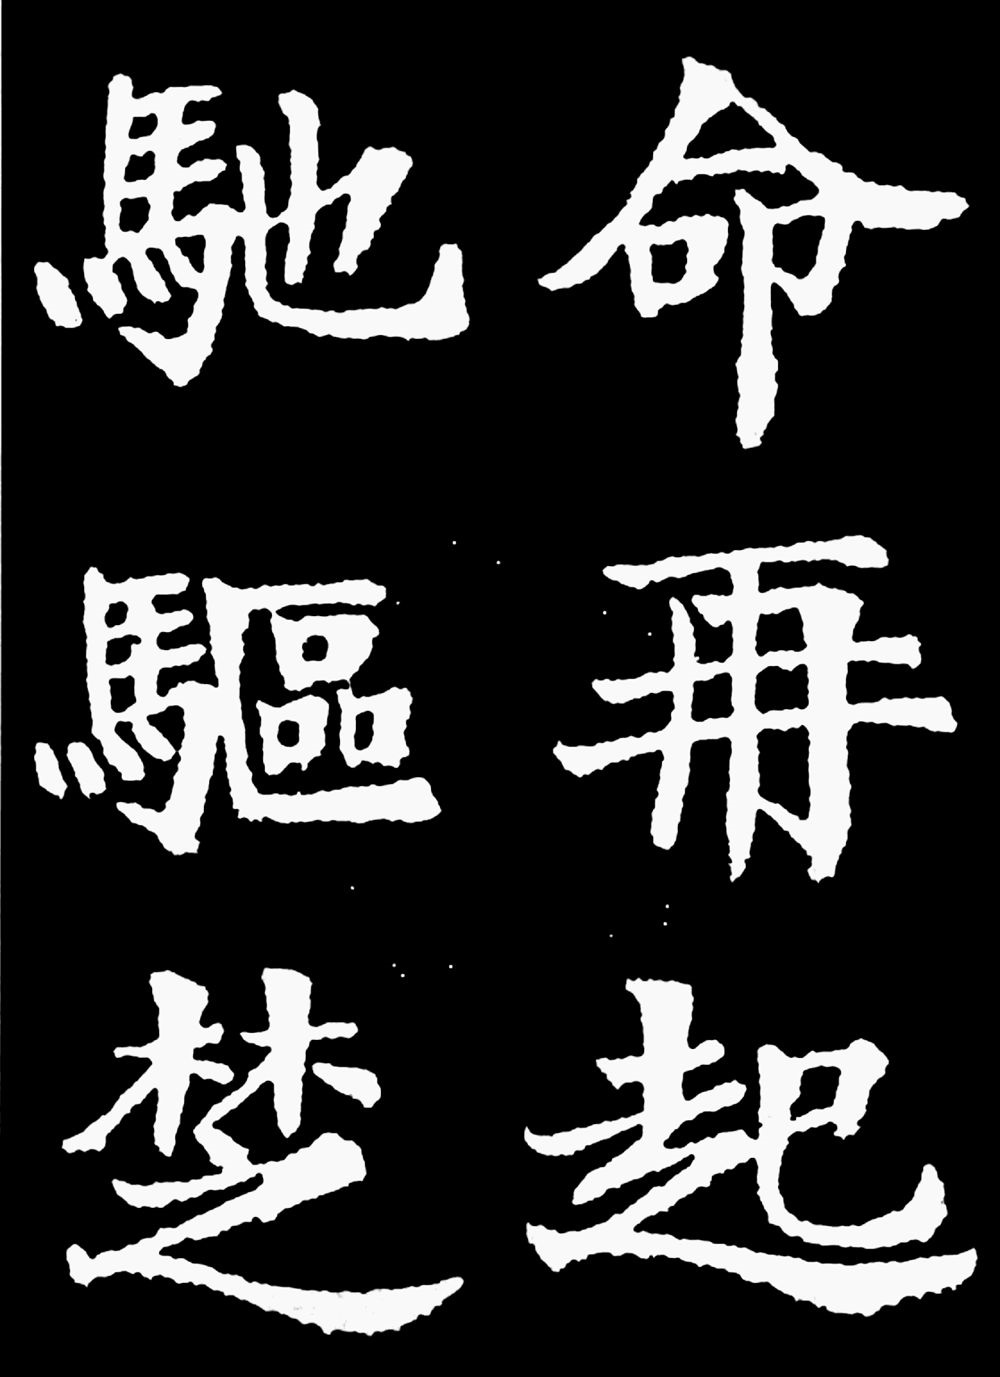 命再起
馳驅楚